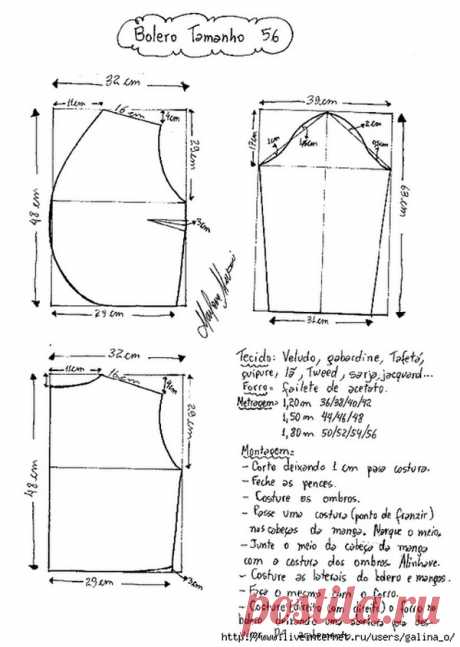 Bolero Tamanho 56
32 cm
11cm
16 cm
4cm
29cm
48 cm
3cm
29 cm
39 cm
17cm
1cm
2cm
63 cm
31 cm
32 cm
11cm
16 cm
4cm
29cm
48 cm
3cm
29 cm
Tecido: Veludo, gabardine, Tafetá,
guipure, lã, Tweed, sarja, jacquard...
Forro= failete de acetato.
Metragem= 1,20m 36/38/40/42
1,50 m 44/46/48
1,80 m 50/52/54/56
Montagem=
- Corte deixando 1 cm para costura.
- Feche as pences.
- Costure os ombros.
- Passe uma costura (ponto de franzir)
nas cabeças da manga. Marque o meio.
- Junte o meio da cabeça da manga
com a costura dos ombros. Alinhave.
- Costure as laterais do bolero e mangas.
- Faça o mesmo com o forro.
- Costure (direito com direito) o forro no
uma abertura
postila.ru
http://www.liveinternet.ru/users/galina_o/